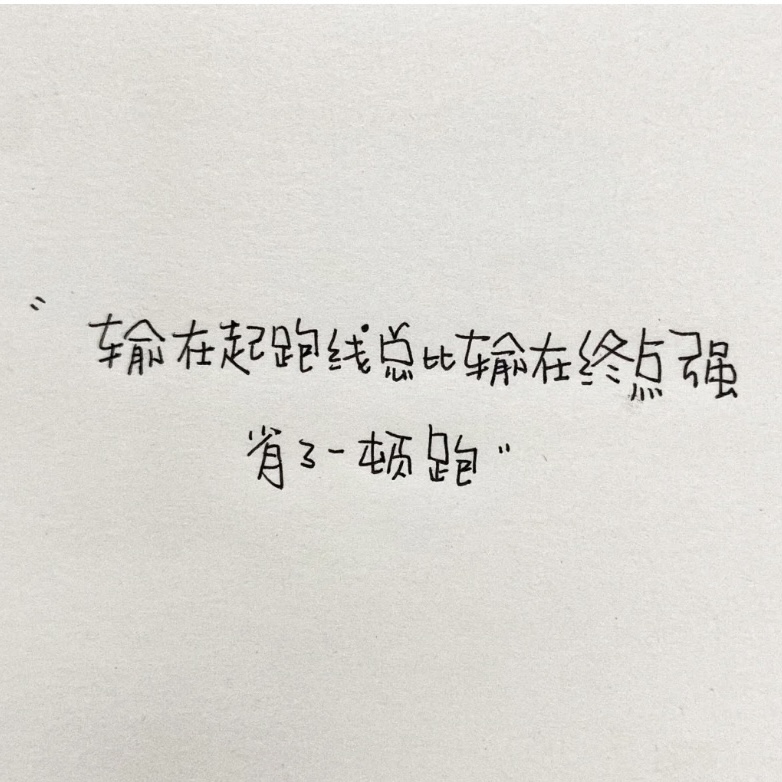 “输在起跑线总比输在终点强
省了一顿跑”